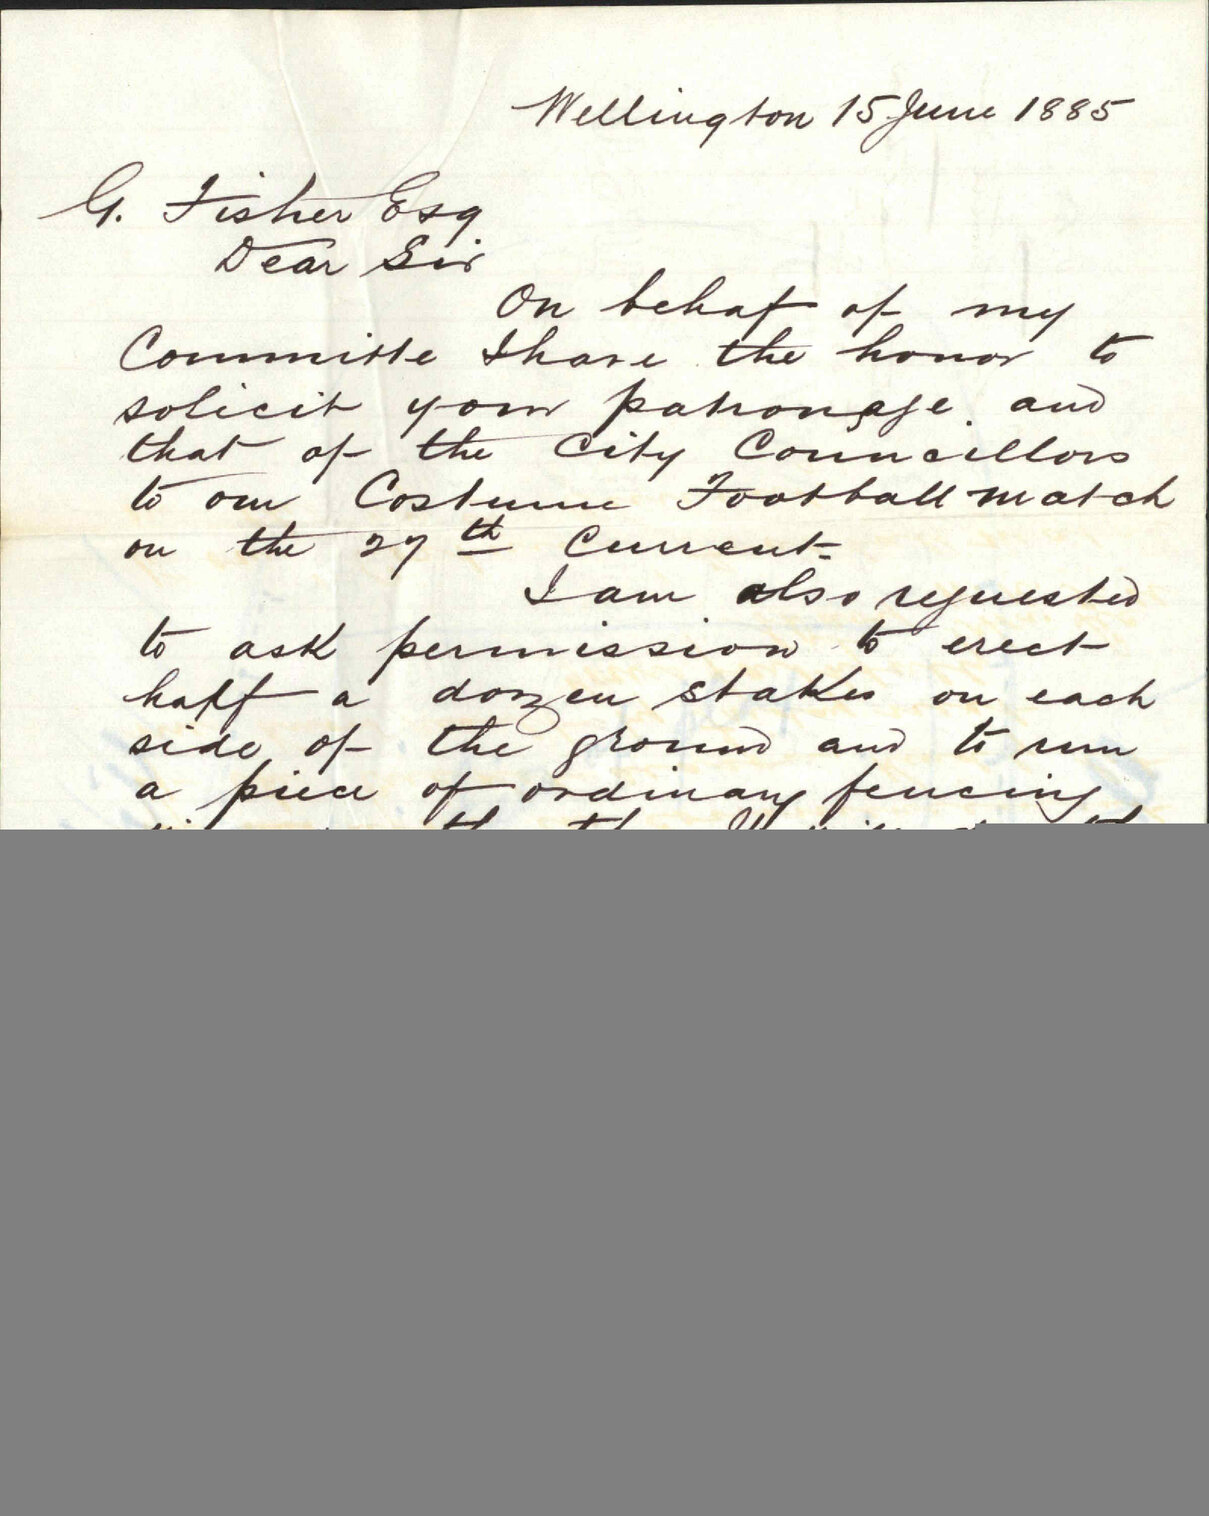 Wellington 15 June 1885
G. Fisher Esq
Dear Sir
On behalf of my
Committe I have the honor to
solicit your patronage and
that of the City Councillors
to our Costume Football match
on the 27th Current.
I am also requested
to ask permission to erect
half a dozen stakes on each
side of the ground and to run
a piece of ordinary fencing